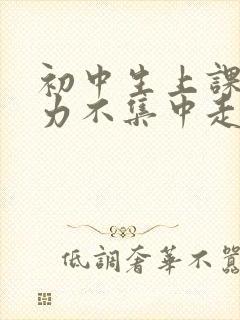 初中生上課
力不集中走
低調奢華不囂